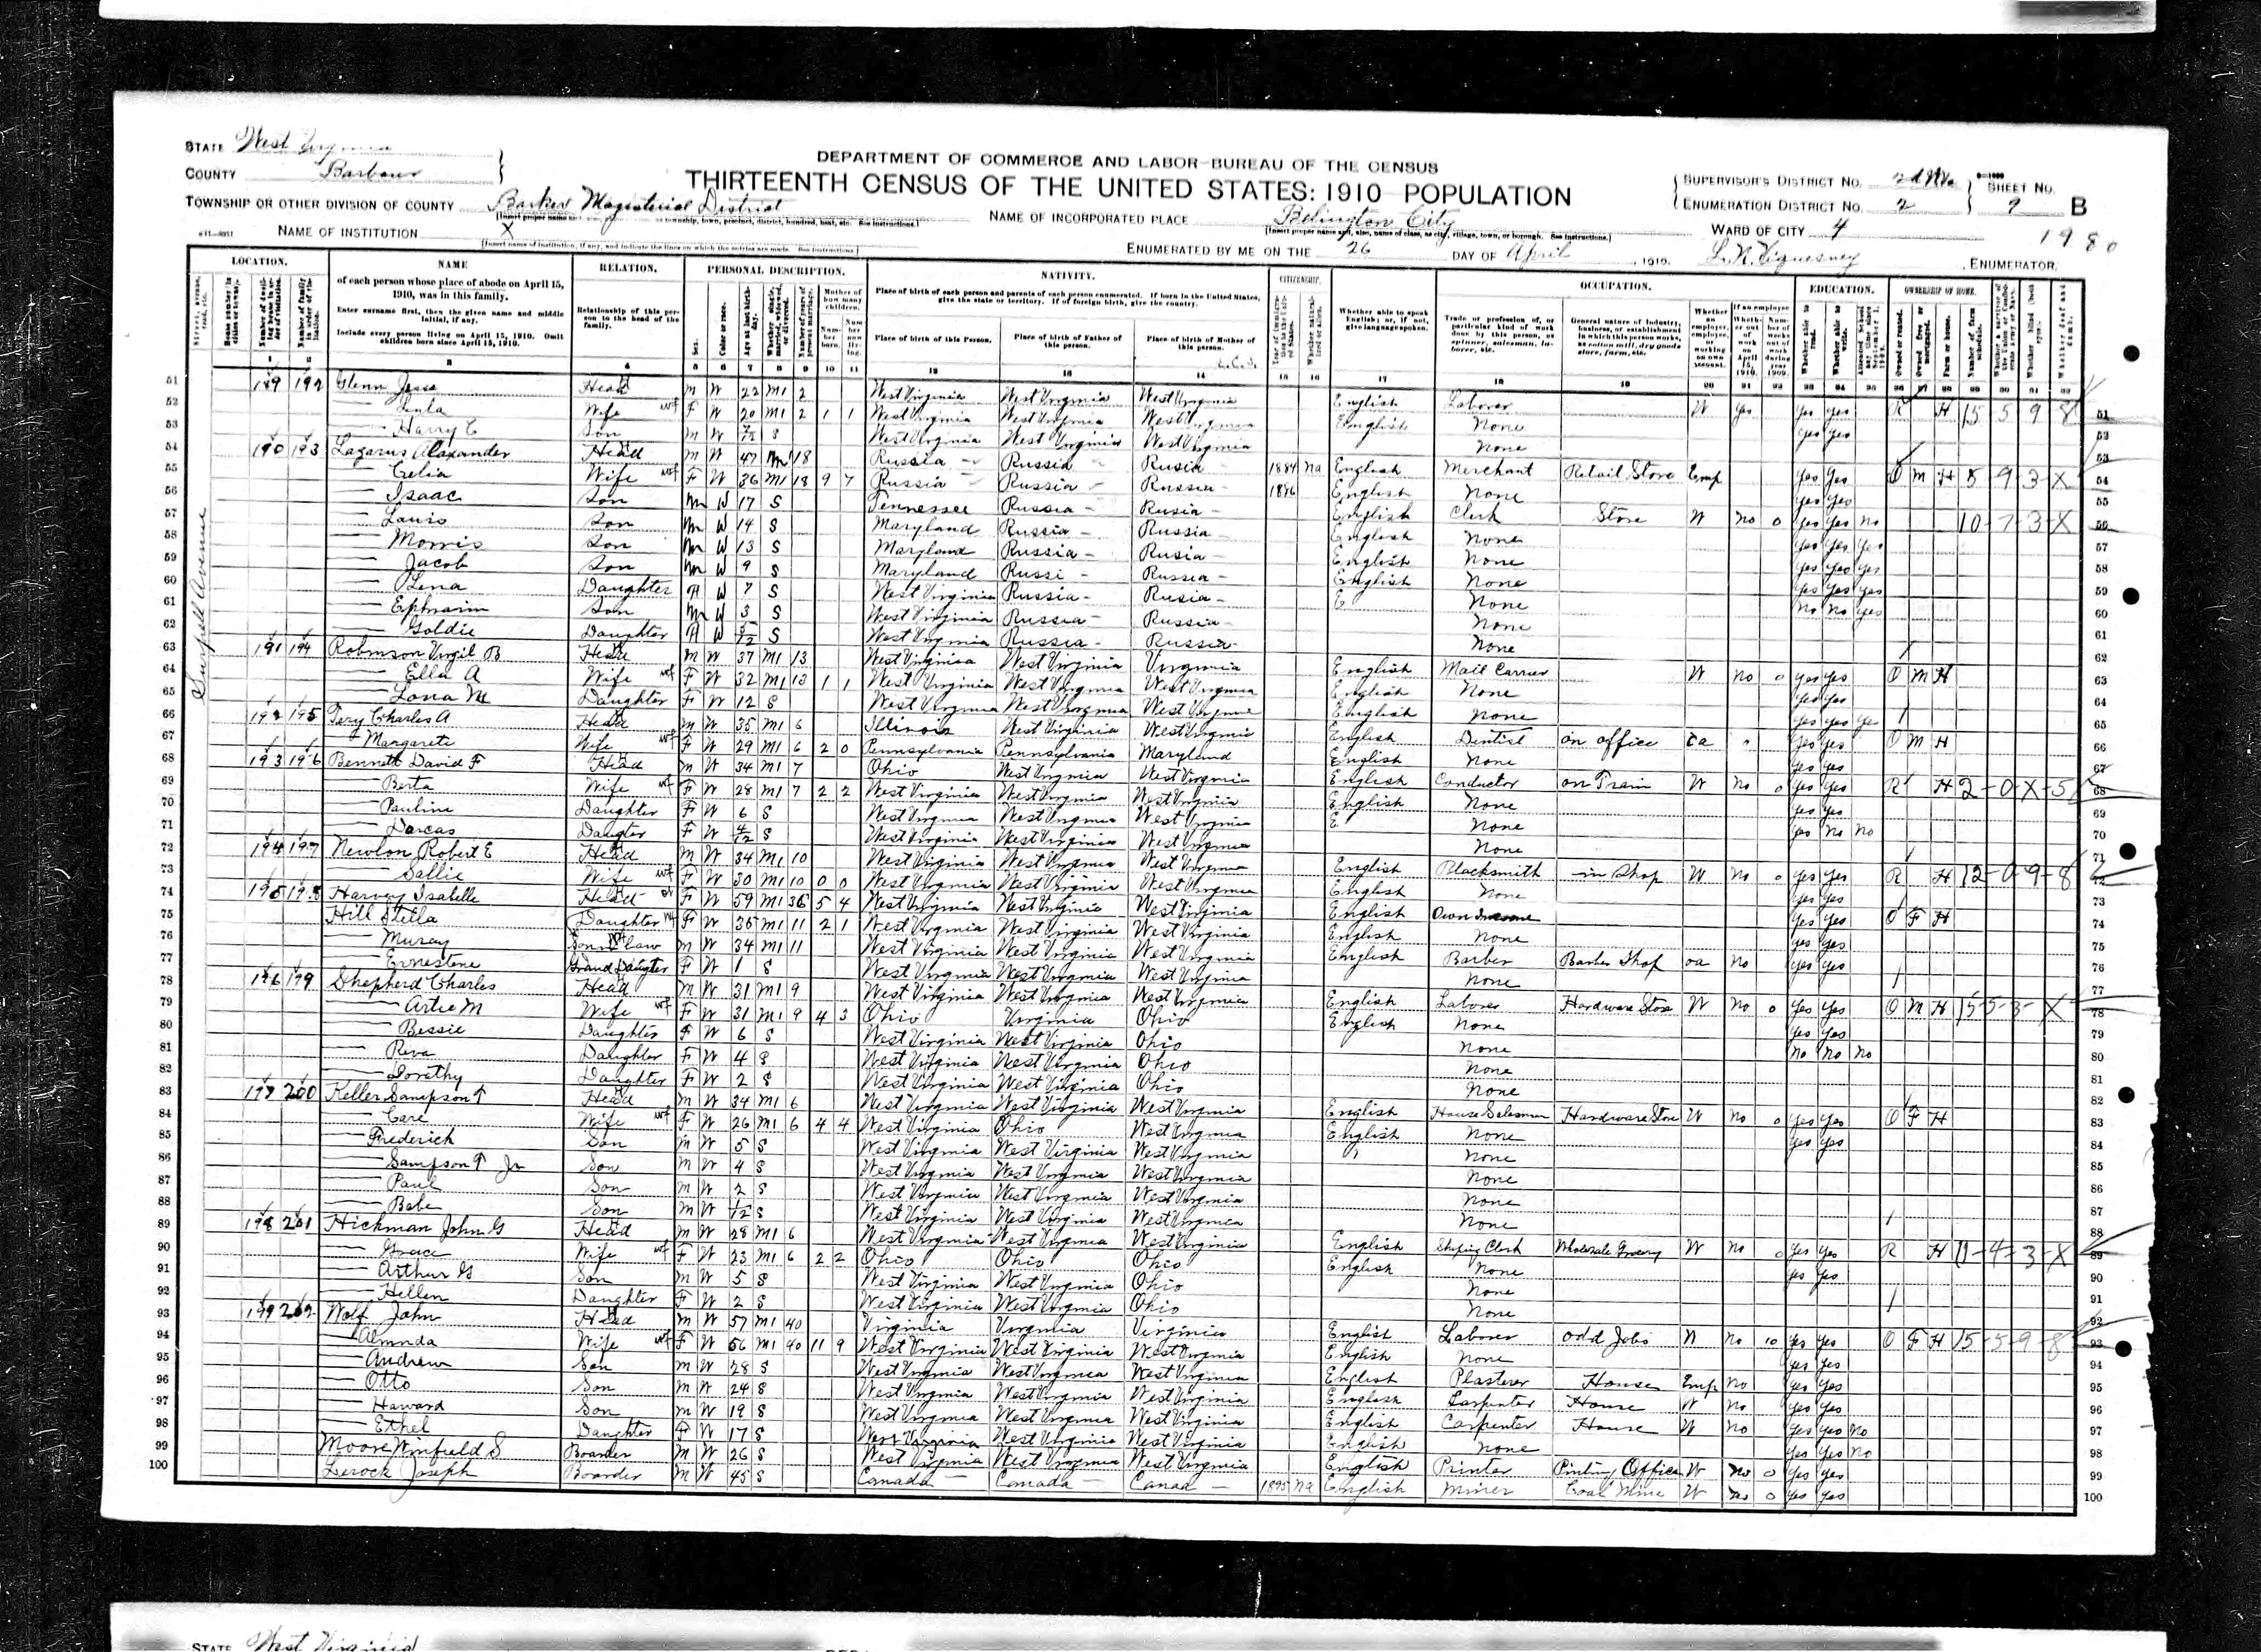 STATE West Virginia
COUNTY Barbour
TOWNSHIP OR OTHER DIVISION OF COUNTY Barker Magisterial District
NAME OF INSTITUTION X
DEPARTMENT OF COMMERCE AND LABOR-BUREAU OF THE CENSUS
THIRTEENTH CENSUS OF THE UNITED STATES: 1910 POPULATION
NAME OF INCORPORATED PLACE Belington City
ENUMERATED BY ME ON THE 26 DAY OF April, 1910.
SUPERVISOR'S DISTRICT NO. 2d WVa
ENUMERATION DISTRICT NO. 2
SHEET NO. 9 B
WARD OF CITY 4
L.N. Viquesney, ENUMERATOR.
LOCATION. NAME RELATION. PERSONAL DESCRIPTION. NATIVITY. CITIZENSHIP. OCCUPATION. EDUCATION. OWNERSHIP OF HOME.
of each person whose place of abode on April 15, 1910, was in this family.
Enter surname first, then the given name and middle initial, if any.
Include every person living on April 15, 1910. Omit children born since April 15, 1910.
Relationship of this person to the head of the family.
Place of birth of each person and parents of each person enumerated. If born in the United States, give the state or territory. If of foreign birth, give the country.
Place of birth of this Person. Place of birth of Father of this person. Place of birth of Mother of this person.
Whether able to speak English; or, if not, give language spoken.
51 189 192 Glenn Jesse Head M W 22 M1 2 West Virginia West Virginia West Virginia English Laborer W Yes Yes Yes R H 15-5-9-8
52 Lula Wife F W 20 M1 2 1 1 West Virginia West Virginia West Virginia English None Yes Yes
53 Harry E Son M W S West Virginia West Virginia West Virginia None
54 190 193 Lazarus Alaxander Head M W 47 M1 18 Russia Russia Rusia 1884 Na English Merchant Retail Store Emp Yes Yes O M H 8-9-3-X
55 Celia Wife F W 36 M1 18 9 7 Russia Russia Russia 1886 English None Yes Yes
56 Isaac Son M W 17 S Tennessee Russia Rusia English Clerk Store W No 0 Yes Yes No 10-7-3-X
57 Louis Son M W 14 S Maryland Russia Russia English None Yes Yes Yes
58 Morris Son M W 13 S Maryland Russia Rusia English None Yes Yes Yes
59 Jacob Son M W 9 S Maryland Russi Russia English None Yes Yes Yes
60 Lena Daughter F W 7 S West Virginia Russia Rusia E None No No Yes
61 Ephraim Son M W 3 S West Virginia Russia Russia None
62 Goldie Daughter F W S West Virginia Russia Russia None
63 191 194 Robinson Virgil B Head M W 37 M1 13 West Virginia West Virginia Virginia English Mail Carrier W No 0 Yes Yes O M H
64 Ella A Wife F W 32 M1 13 1 1 West Virginia West Virginia West Virginia English None Yes Yes
65 Lona M Daughter F W 12 S West Virginia West Virginia West Virginia English None Yes Yes Yes
66 192 195 Charles A Head M W 35 M1 6 Illinois West Virginia West Virginia English Dentist an office oa Yes Yes O M H
67 Margarete Wife F W 29 M1 6 2 0 Pennsylvania Pennsylvania Maryland English None Yes Yes
68 193 196 Bennett David F Head M W 34 M1 7 Ohio West Virginia West Virginia English Conductor on Train W No 0 Yes Yes R H 2-0-X-5
69 Berta Wife F W 28 M1 7 2 2 West Virginia West Virginia West Virginia English None Yes Yes
70 Pauline Daughter F W 6 S West Virginia West Virginia West Virginia E None Yes No No
71 Darcas Daugter F W 4/12 S West Virginia West Virginia West Virginia None
72 194 197 Newlon Robert E Head M W 34 M1 10 West Virginia West Virginia West Virginia English Blacksmith in Shop W No 0 Yes Yes R H 12-0-9-8
73 Sallie Wife F W 30 M1 10 0 0 West Virginia West Virginia West Virginia English None Yes Yes
74 195 198 Harvey Isabelle Head F W 59 M1 36 5 4 West Virginia West Virginia West Virginia English Own Income Yes Yes O F H
75 Hill Stella Daughter F W 35 M1 11 2 1 West Virginia West Virginia West Virginia English None Yes Yes
76 Muray Son in law M W 34 M1 11 West Virginia West Virginia West Virginia English Barber Barber Shop oa No Yes Yes
77 Ernestene Grand Daugter F W 1 S West Virginia West Virginia West Virginia None
78 196 199 Shepherd Charles Head M W 31 M1 9 West Virginia West Virginia West Virginia English Laborer Hardware Store W No 0 Yes Yes O M H 15-5-3-X
79 Artie M Wife F W 31 M1 9 4 3 Ohio Virginia Ohio English None Yes Yes
80 Bessie Daughter F W 6 S West Virginia West Virginia Ohio None No No No
81 Reva Daughter F W 4 S West Virginia West Virginia Ohio None
82 Dorethy Daughter F W 2 S West Virginia West Virginia Ohio None
83 197 200 Keller Sampson T Head M W 34 M1 6 West Virginia West Virginia West Virginia English House Salesman Hardware Store W No 0 Yes Yes O F H
84 Care Wife F W 26 M1 6 4 4 West Virginia Ohio West Virginia English None Yes Yes
85 Frederick Son M W 5 S West Virginia West Virginia West Virginia None
86 Sampson T Jr Son M W 4 S West Virginia West Virginia West Virginia None
87 Paul Son M W 2 S West Virginia West Virginia West Virginia None
88 Babe Son M W 1/12 S West Virginia West Virginia West Virginia None
89 198 201 Hickman John G Head M W 28 M1 6 West Virginia West Virginia West Virginia English Shiping Clerk Wholesale Grocery W No 0 Yes Yes R H 11-4-3-X
90 Grace Wife F W 23 M1 6 2 2 Ohio Ohio Ohio English None Yes Yes
91 Arthur G Son M W 5 S West Virginia West Virginia Ohio None
92 Hellen Daughter F W 2 S West Virginia West Virginia Ohio None
93 199 202 Wolf John Head M W 57 M1 40 Virginia Virginia Virginia English Laborer Odd Jobs W No 10 Yes Yes O F H 15-5-9-8
94 Amnda Wife F W 56 M1 40 11 9 West Virginia West Virginia West Virginia English None Yes Yes
95 Andrew Son M W 28 S West Virginia West Virginia West Virginia English Plasterer House Emp No Yes Yes
96 Otto Son M W 24 S West Virginia West Virginia West Virginia English Carpenter House W No Yes Yes
97 Haward Son M W 19 S West Virginia West Virginia West Virginia English Carpenter House W No Yes Yes No
98 Ethel Daughter F W 17 S West Virginia West Virginia West Virginia English None Yes Yes No
99 Moore Winfield S Boarder M W 26 S West Virginia West Virginia West Virginia English Printer Pinting Office W No 0 Yes Yes
100 Lerock Joseph Boarder M W 45 S Canada Canada Canad 1895 Na English Miner Coal Mine W No 0 Yes Yes
STATE West Virginia